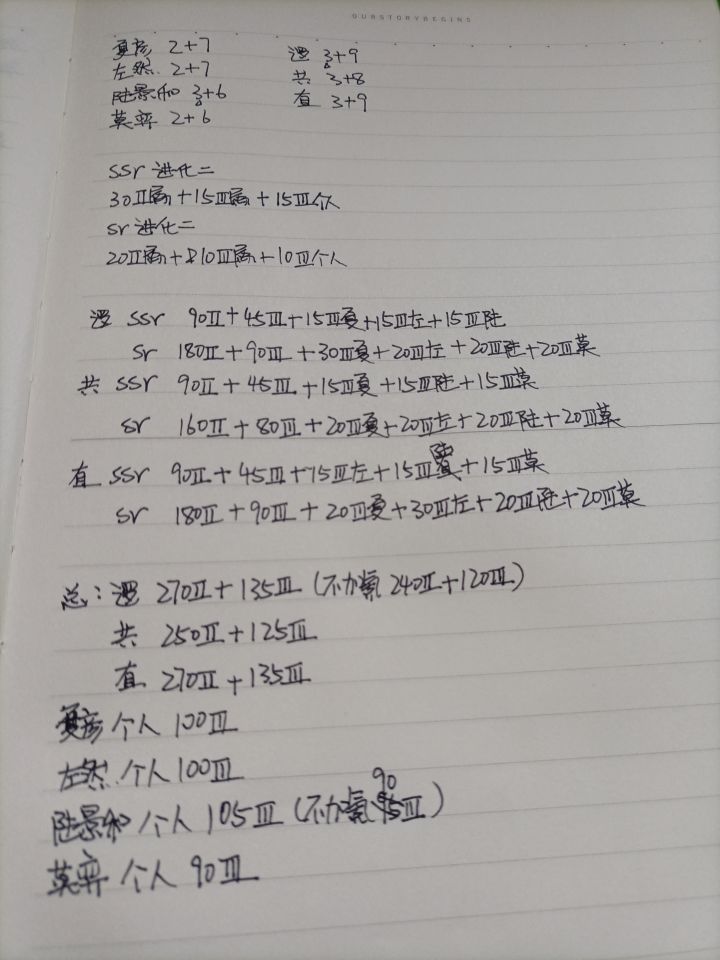 OURSTORYBEGINS
夏彦 2+7
逻 3+9
左然 2+7
共 3+8
陆景和 3+6
直 3+9
莫弈 2+6
SSr 进化二
30Ⅱ属+15Ⅲ属+15Ⅲ个人
Sr 进化二
20Ⅱ属+10Ⅲ属+10Ⅲ个人
逻 SSr 90Ⅱ+45Ⅲ+15Ⅲ夏+15Ⅲ左+15Ⅲ陆
Sr 180Ⅱ+90Ⅲ+30Ⅲ夏+20Ⅲ左+20Ⅲ陆+20Ⅲ莫
共 SSr 90Ⅱ+45Ⅲ+15Ⅲ夏+15Ⅲ陆+15Ⅲ莫
Sr 160Ⅱ+80Ⅲ+20Ⅲ夏+20Ⅲ左+20Ⅲ陆+20Ⅲ莫
直 SSr 90Ⅱ+45Ⅲ+15Ⅲ左+15Ⅲ陆+15Ⅲ莫
Sr 180Ⅱ+90Ⅲ+20Ⅲ夏+30Ⅲ左+20Ⅲ陆+20Ⅲ莫
总：逻 270Ⅱ+135Ⅲ（不加氪 240Ⅱ+120Ⅲ）
共 250Ⅱ+125Ⅲ
直 270Ⅱ+135Ⅲ
夏彦 个人 100Ⅲ
左然 个人 100Ⅲ
陆景和 个人 105Ⅲ（不加氪 90Ⅲ）
莫弈 个人 90Ⅲ